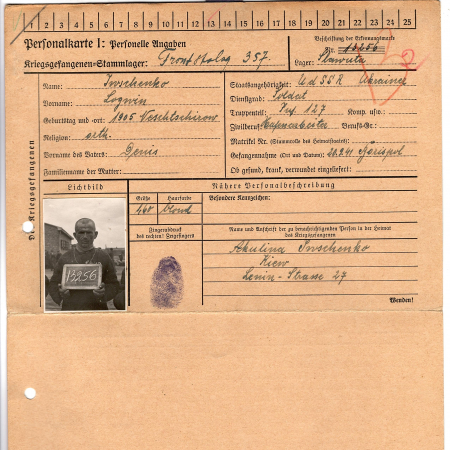 1 2 3 4 5 6 7 8 9 10 11 12 13 14 15 16 17 18 19 20 21 22 23 24 25
Personalkarte I: Personelle Angaben
Kriegsgefangenen-Stammlager: Front Stalag 357.
Beschriftung der Erkennungsmarke
Nr. 13256
Lager: Slawuta
Des Kriegsgefangenen
Name: Iwschenko
Vorname: Logwin
Geburtstag und -ort: 1905
Religion: orth.
Vorname des Vaters: Denis
Familienname der Mutter:
Staatsangehörigkeit: UdSSR Ukrainer
Dienstgrad: Soldat
Truppenteil: Inf 127 Komp. usw.:
Zivilberuf: Berufs-Gr.:
Matrikel Nr. (Stammrolle des Heimatstaates):
Gefangennahme (Ort und Datum):
Ob gesund, krank, verwundet eingeliefert:
Lichtbild
13256
Nähere Personalbeschreibung
Größe Haarfarbe
blond
Besondere Kennzeichen:
Fingerabdruck
des rechten! Zeigefingers
Name und Anschrift der zu benachrichtigenden Person in der Heimat
des Kriegsgefangenen
Akulina Iwschenko
Kiew
Lenin-Strasse 27
Wenden!